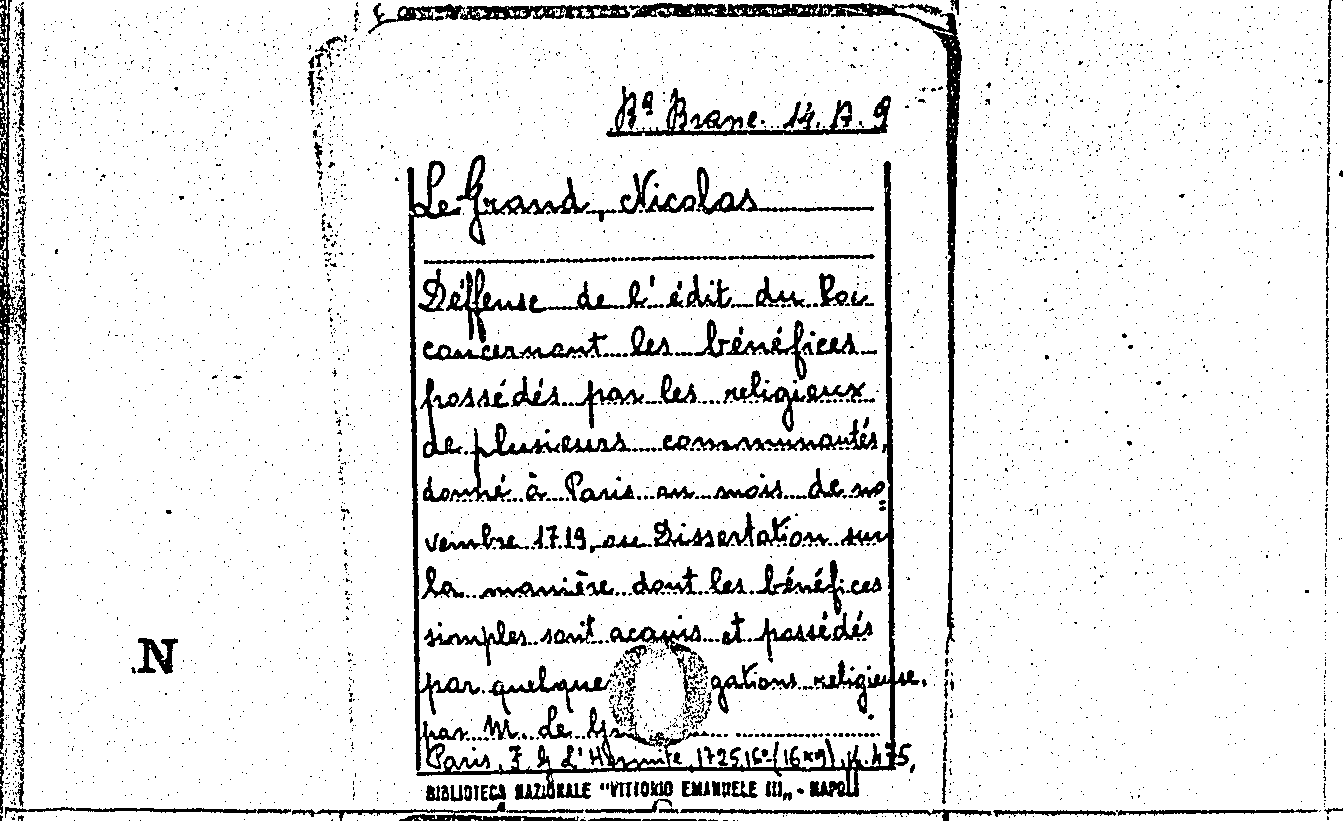 Bª Branc. 14. A. 9
Le Grand, Nicolas
Déffense de l'édit du Roi
concernant les bénéfices
possédés par les religieux
de plusieurs communautés,
donné à Paris au mois de no
vembre 1719, ou Dissertation sur
la manière dont les bénéfices
simples sont acquis et possédés
par quelque gations religieuse.
par M. Le Gr
Paris, F. G. L'Hermite, 1725, 16º (16x9), p. 475,
BIBLIOTECA NAZIONALE "VITTORIO EMANUELE III„ - NAPOLI
N